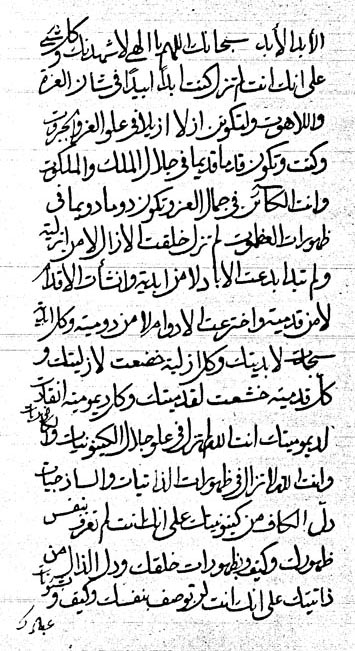 الأبد الأبد سبحانك اللهم يا الهي لأشهدنك وكلشئ
على انك انت لم تزل كنت ابداً ابيداً في شان العزة
واللاهوت ولتكونن ازلاً ازيلاً في علو العز والجبروت
وكنت وتكون قدماً قديماً في جلال الملك والملكوت
وانت الكائن في جمال العز وتكون دوماً دويماً في
ظهورات العظموت لم تزل خلقت الأزال لا من ازلية
ولم تبد ابدعت الأباد لا من ابدية وانشأت الأقدام
لا من قدمية واخترعت الأدوام لا من دومية وكل ابدية
سجدت لأبديتك وكل ازلية خضعت لأزليتك و
كل قدمية خشعت لقدميتك وكل ديمومية انقادت
لديموميتك انت الله لم تزل في علو جلال الكينونيات والكافورات
وانت الله لا تزال في ظهورات الذاتيات والساذجيات
دل الكاف من كينونيتك على انك انت لم تعرف بنفس
ظهورك وكيف وبظهورات خلقك ودل الذال من
ذاتيتك على انك انت لن توصف بنفسك وكيف و
عبادك